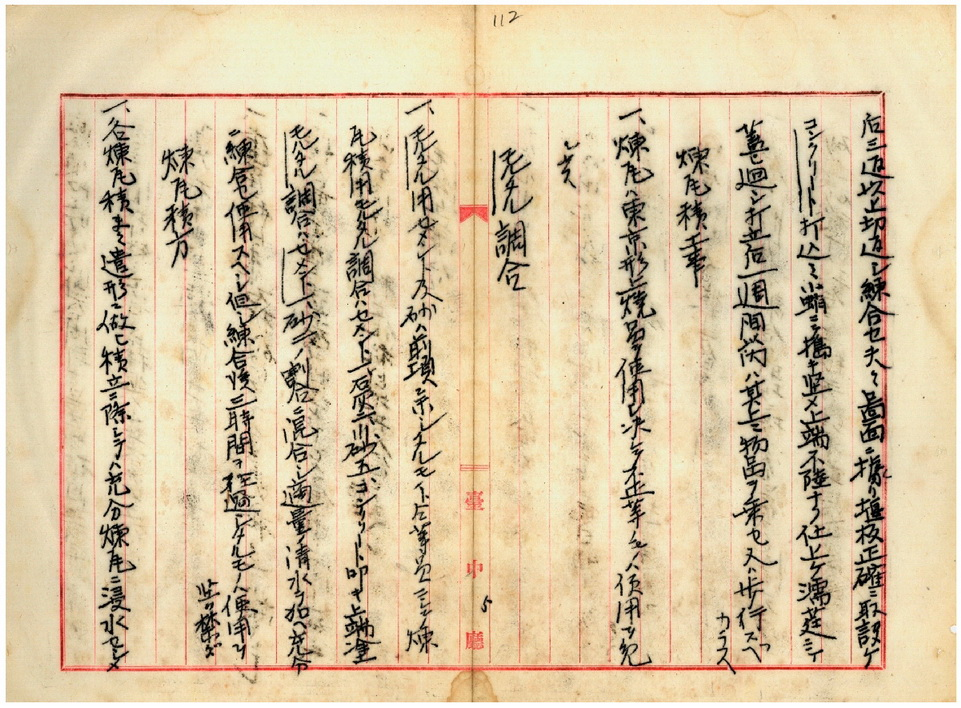 112
后三返以上切返シ練合セ夫々図面ニ據リ堰板正確ニ取設ケ
コンクリート打込ミ小蛸ニテ搗キ堅メ上端不陸ナク仕上ケ濡莚ニテ
蓋ヒ廻シ打立后一週間内ハ其上ニ物品ヲ乗セ又ハ歩行スヘ
カラス
煉瓦積工事
一、煉瓦ハ東京形上焼品ヲ使用シ決シテ不正等ノモノハ使用ヲ免
シサス
モルタル調合
一、モルタル用セメント及砂ハ前項ニ示シタルモノト仝等品ニシテ煉
瓦積用モルタル調合ハセメント一、石灰二、川砂五コンクリート叩キ上端塗
モルタル調合ハセメント一、砂二ノ割合ニ混合シ適量ノ清水ヲ加ヘ充分
ニ練合セ使用スヘシ但シ練合後三時間ヲ経過シタルモノハ使用ヲ
禁ス
煉瓦積方
一、各煉瓦積ハ遣形ニ倣ヒ積立ニ際シテハ充分煉瓦ニ浸水セシメ
臺中廳
5